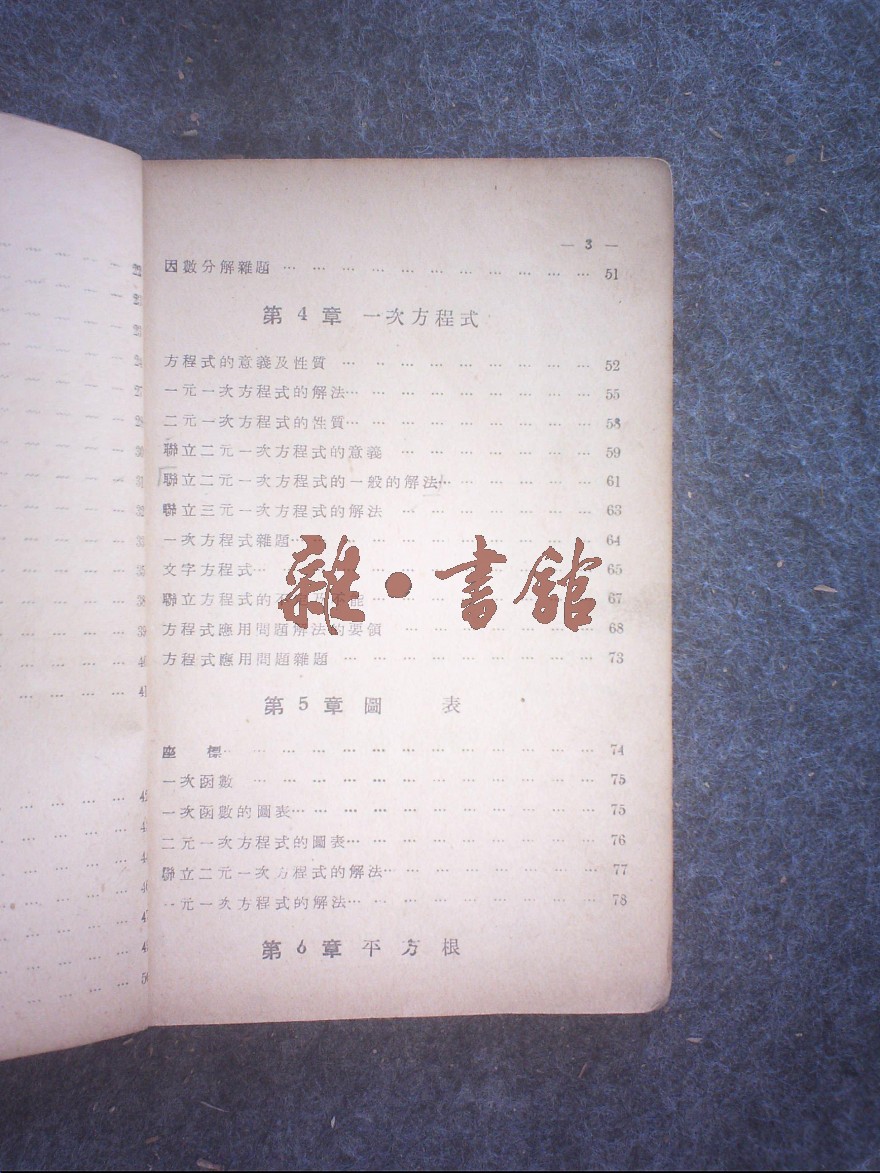 — 3 —
因數分解雜題 … … … … … … … … … … … 51
第 4 章 一次方程式
方程式的意義及性質 … … … … … … … … … 52
一元一次方程式的解法… … … … … … … … … 55
二元一次方程式的性質… … … … … … … … … 58
聯立二元一次方程式的意義 … … … … … … … 59
聯立二元一次方程式的一般的解法… … … … … … 61
聯立三元一次方程式的解法 … … … … … … … 63
一次方程式雜題… … … … … … … … … … … 64
文字方程式… … … … … … … … … … … … 65
聯立方程式的 … … … … … … … … 67
方程式應用問題解法的要領 … … … … … … … 68
方程式應用問題雜題 … … … … … … … … … 73
雜•書館
第 5 章 圖 表
座 標… … … … … … … … … … … … … 74
一次函數 … … … … … … … … … … … … 75
一次函數的圖表… … … … … … … … … … … 75
二元一次方程式的圖表… … … … … … … … … 76
聯立二元一次方程式的解法… … … … … … … … 77
一元一次方程式的解法… … … … … … … … … 78
第 6 章 平 方 根